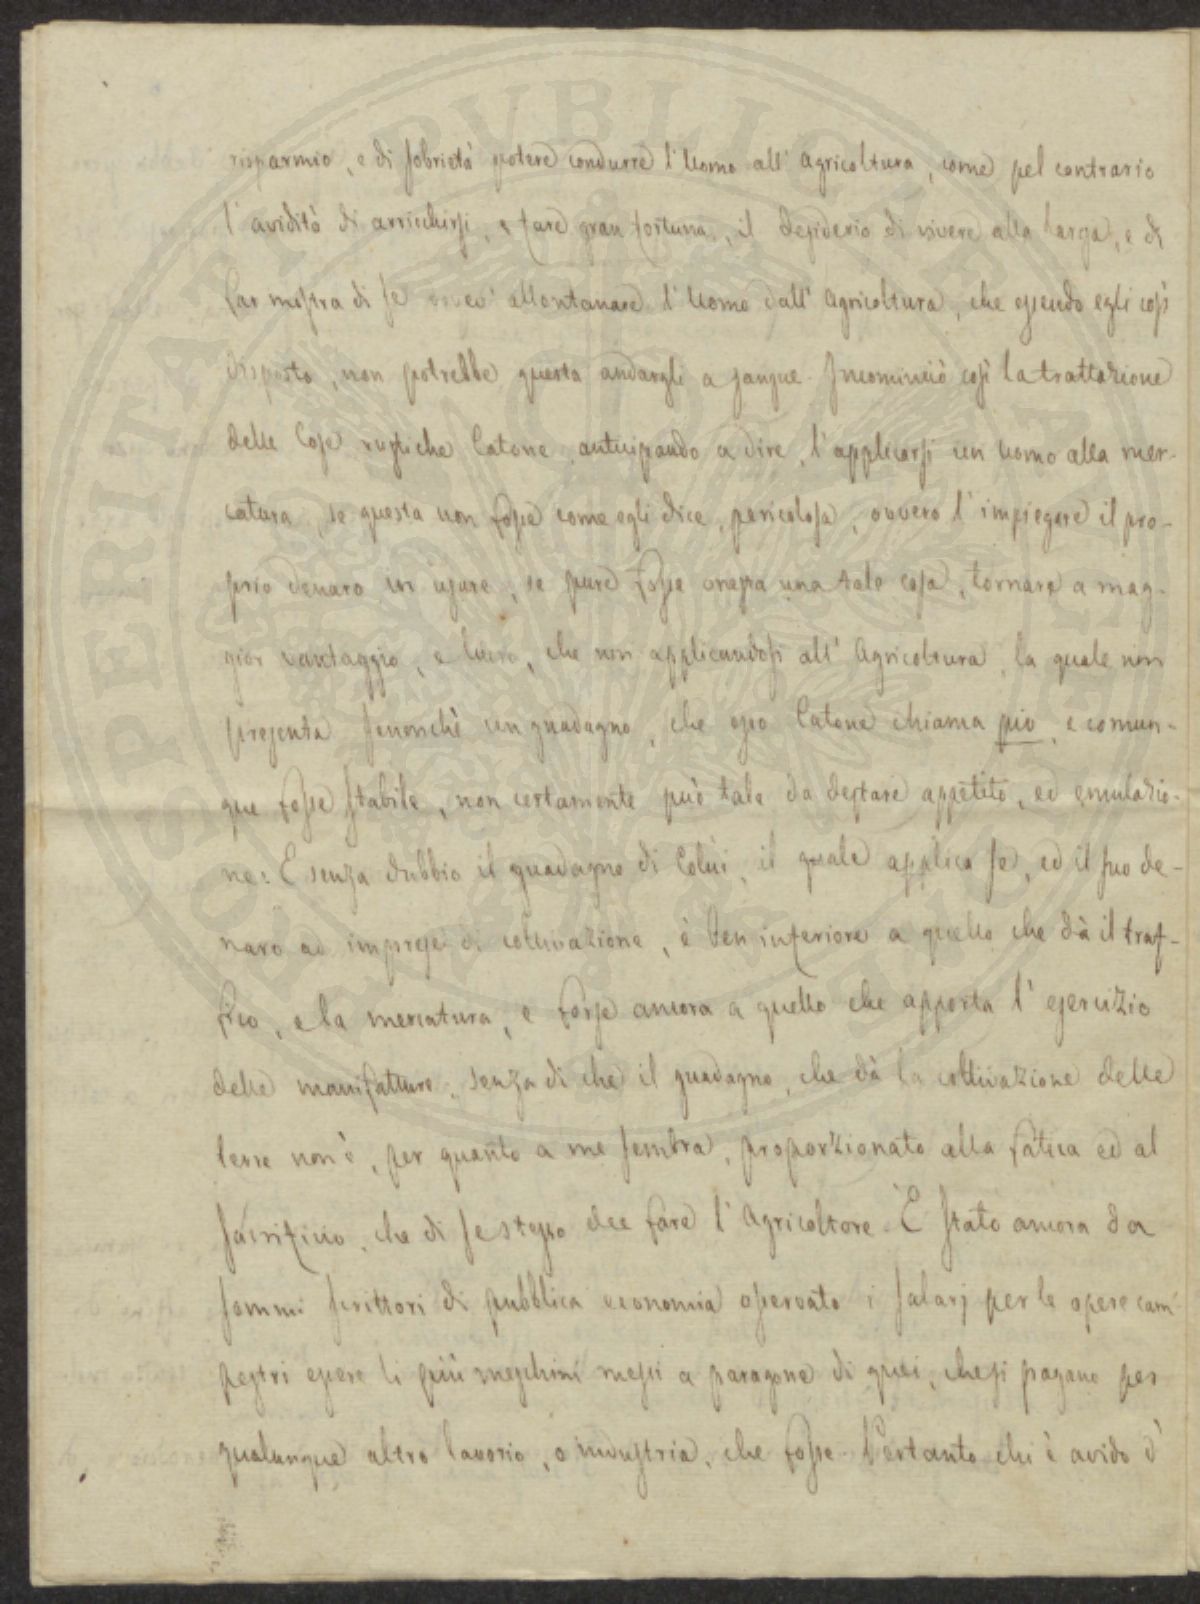 risparmio, e di sobrietà potere condurre l'Uomo all'Agricoltura, come pel contrario
l'avidità di arricchirsi, e fare gran fortuna, il desiderio di vivere alla larga, e di
far mostra di se allontanare l'Uomo dall'Agricoltura, che essendo egli così
disposto, non potrebbe questa andargli a sangue. Incominciò così la trattazione
delle Cose rustiche Catone anticipando a dire, l'applicarsi un Uomo alla mer-
catura, se questa non fosse come egli dice, pericolosa, ovvero l'impiegare il pro-
prio denaro in usure, se pure fosse onesta una tale cosa, tornare a mag-
gior vantaggio, e lucro, che non applicandosi all'Agricoltura, la quale non
presenta senonchè un guadagno, che esso Catone chiama pio, e comun-
que fosse stabile, non certamente può tale da destare appetito, ed emulazio-
ne: E senza dubbio il guadagno di Colui, il quale applica se, ed il suo de-
naro ad imprese di coltivazione, è ben inferiore a quello che dà il traf-
fico, e la mercatura, e forse ancora a quello che apporta l'esercizio
delle manifatture, senza di che il guadagno, che dà la coltivazione delle
terre non è, per quanto a me sembra, proporzionato alla fatica ed al
sacrificio, che di se stesso dee fare l'Agricoltore. È stato ancora da
sommi scrittori di pubblica economia osservato i salarj per le opere cam-
pestri essere li più meschini messi a paragone di quei, che si pagano per
qualunque altro lavorio, o industria, che fosse. Pertanto chi è avido d'
SPERITATI PVBLICAE